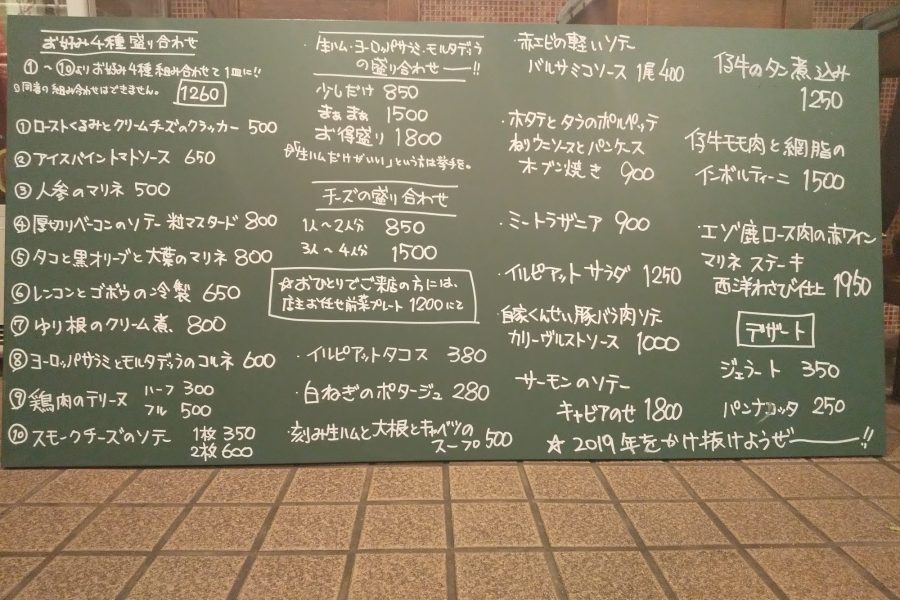 お好み4種盛り合わせ
①〜⑩よりお好み4種組み合わせて1皿に!!
同着の組み合わせはできません。
1260
①ローストくるみとクリームチーズのクラッカー 500
②アイスバイントマトソース 650
③人参のマリネ 500
④厚切りベーコンのソテー粒マスタード 800
⑤タコと黒オリーブと大葉のマリネ 800
⑥レンコンとゴボウの冷製 650
⑦ゆり根のクリーム煮、800
⑧ヨーロッパサラミとモルタデッラのコルネ 600
⑨鶏肉のテリーヌ ハーフ 300
フル 500
⑩スモークチーズのソテー 1枚 350
2枚 600
・生ハム・ヨーロッパサラミ・モルタデッラ
の盛り合わせー!!
少しだけ 850
まぁまぁ 1500
お得盛り 1800
「生ハムだけがいい」という方は挙手を。
チーズの盛り合わせ
1人〜2人分 850
3人〜4人分 1500
☆おひとりでご来店の方には、
店主お任せ前菜プレート 1200にと
・イルピアットタコス 380
・白ねぎのポタージュ 280
・刻み生ハムと大根とキャベツの
スープ 500
・赤エビの軽いソテー
バルサミコソース 1尾 400
・ホタテとタラのポルペッテ
ねりウニソースとパンケース
オーブン焼き 900
・ミートラザニア 900
・イルピアットサラダ 1250
・自家くんせい豚バラ肉ソテー
カリーヴルストソース 1000
サーモンのソテー
キャビアのせ 1800
仔牛のタン煮込み
1250
仔牛モモ肉と網脂の
インボルティーニ 1500
・エゾ鹿ロース肉の赤ワイン
マリネ ステーキ
西洋わさび仕立 1950
デザート
ジェラート 350
パンナコッタ 250
☆2019年をかけ抜けようぜー!!